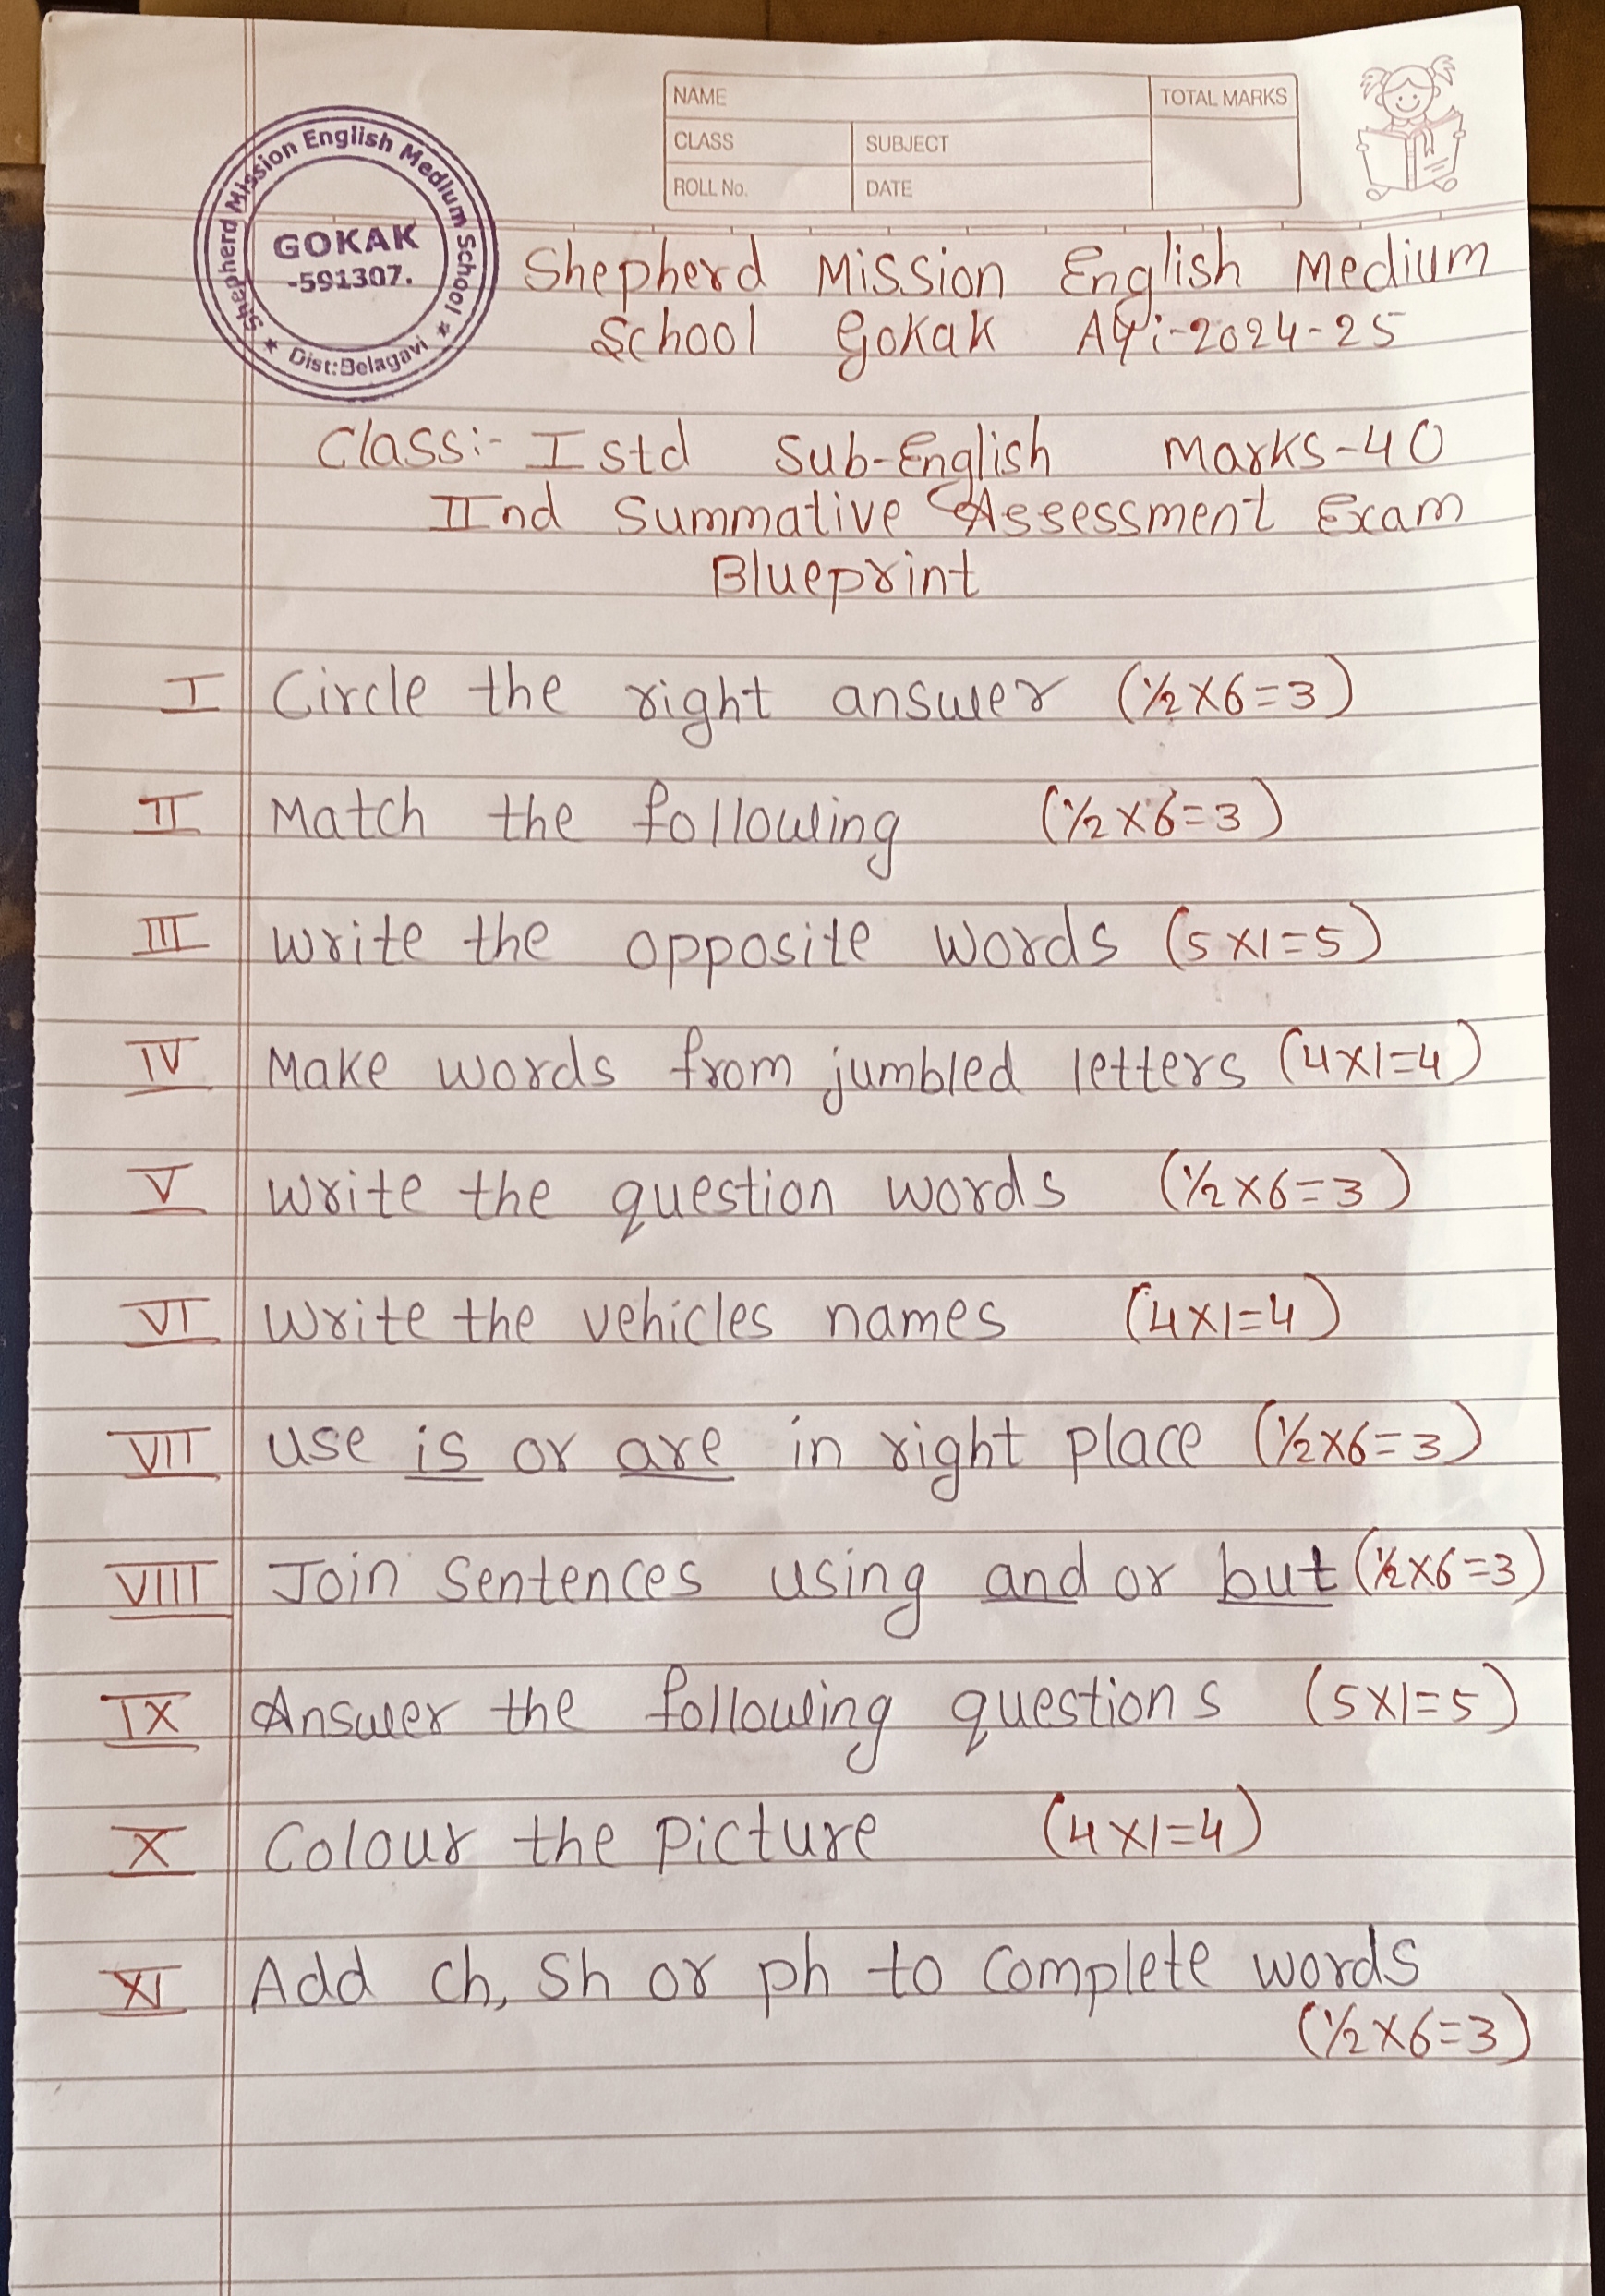 NAME
TOTAL MARKS
CLASS
SUBJECT
ROLL No.
DATE
Shepherd Mission English Medium School
GOKAK
-591307.
★ Dist:Belagavi ★
Shepherd Mission English Medium
School Gokak AY:-2024-25
Class:- I std Sub-English Marks-40
IInd Summative Assessment Exam
Blueprint
I Circle the right answer (1/2X6=3)
II Match the following (1/2X6=3)
III Write the opposite words (5X1=5)
IV Make words from jumbled letters (4X1=4)
V Write the question words (1/2X6=3)
VI Write the vehicles names (4X1=4)
VII use is or are in right place (1/2X6=3)
VIII Join Sentences using and or but (1/2X6=3)
IX Answer the following questions (5X1=5)
X Colour the Picture (4X1=4)
XI Add ch, Sh or ph to complete words
(1/2X6=3)